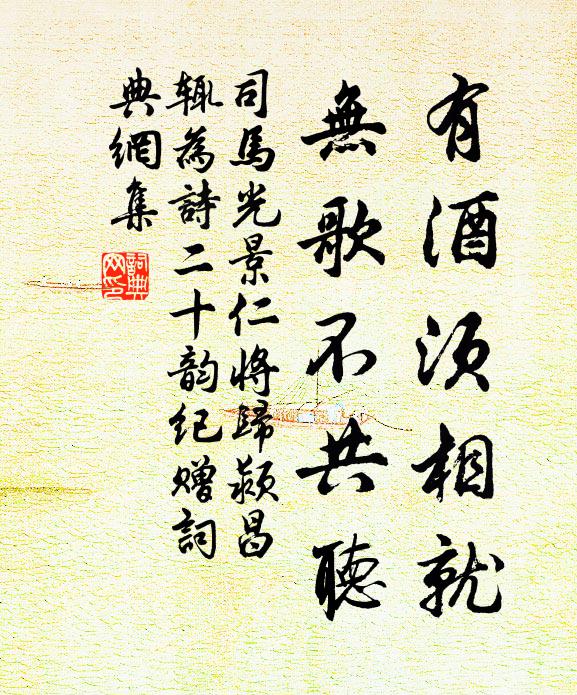 有酒須相就
無歌不共聽
司馬光景仁將歸潁昌
輒為詩二十韵紀贈詞
典網集
詞典
网印